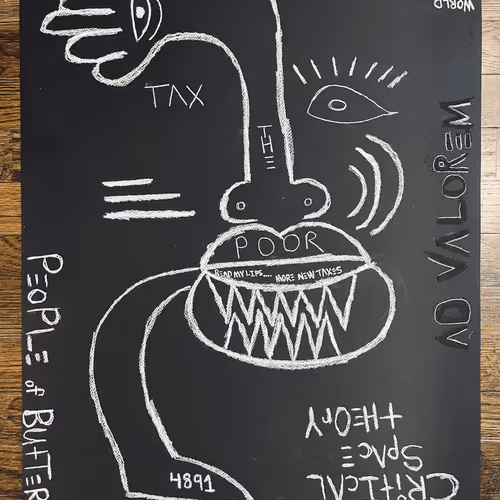 WORLD
TAX
THE
AD VALOREM
POOR
READ MY LIPS.... MORE NEW TAXES
PEOPLE of BUTTER
CRITICAL
SPACE
THEORY
4891